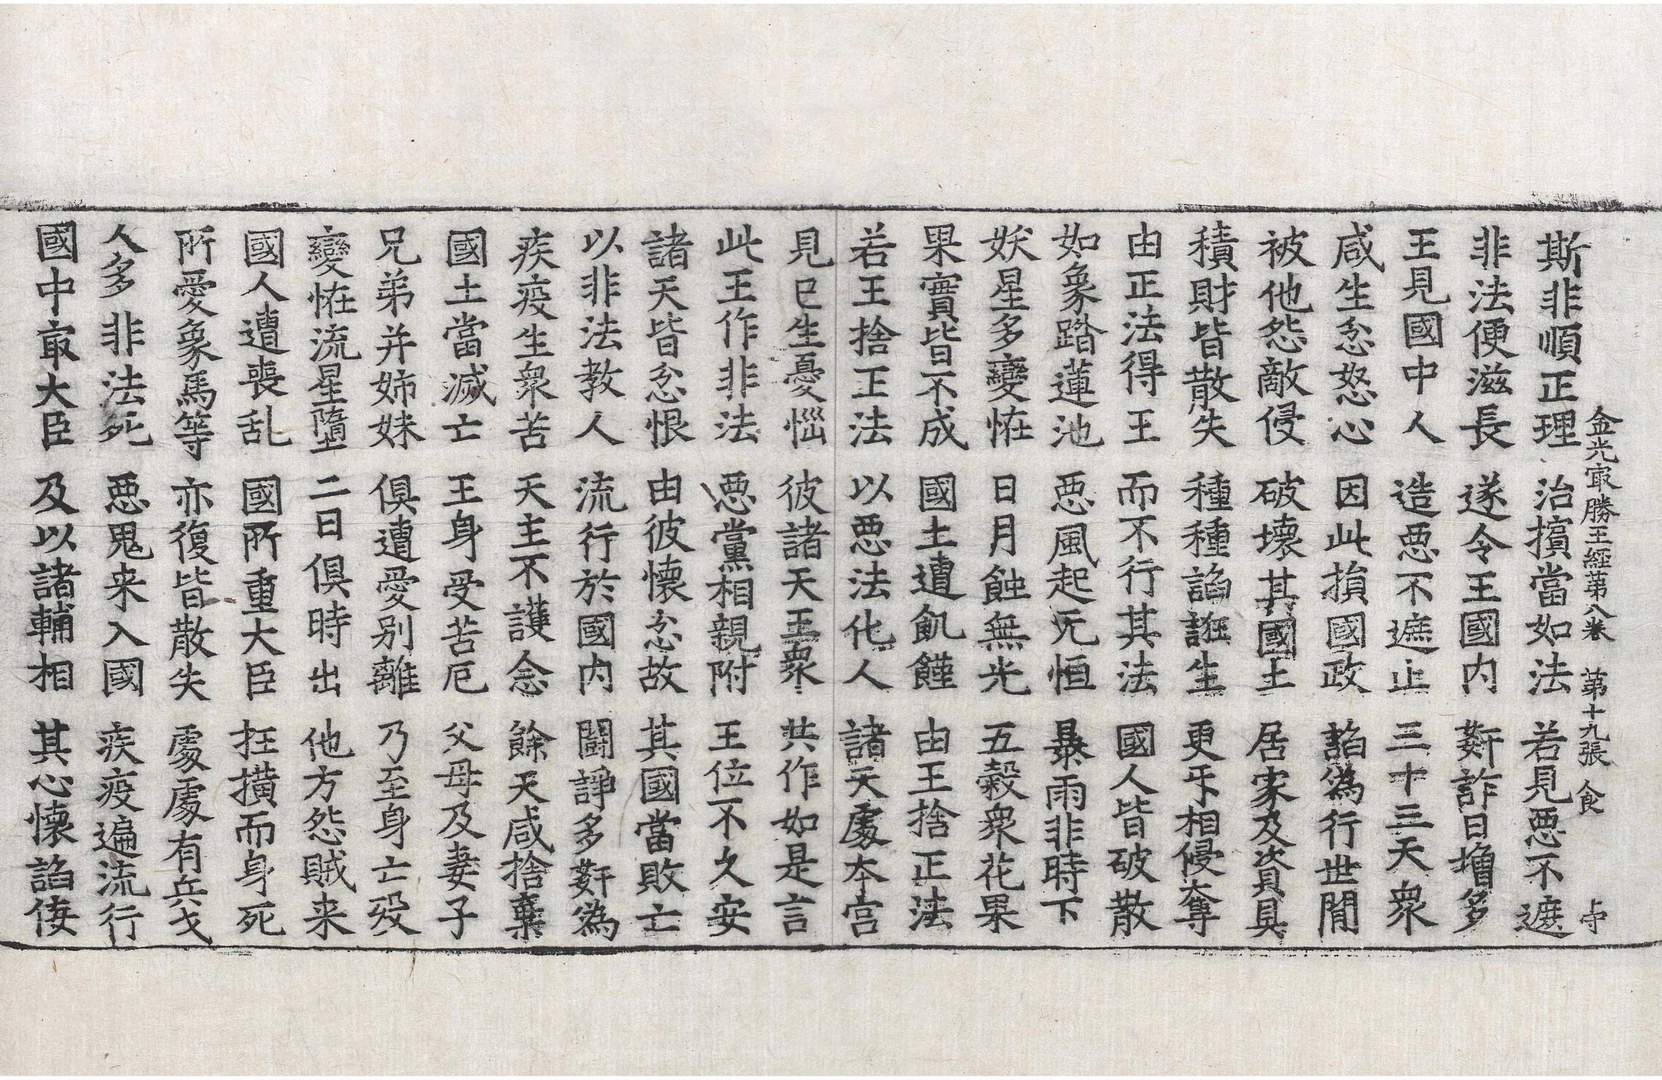 金光㝡勝王經第八卷 第十九張 食
斯非順正理 治擯當如法 若見惡不遮
非法便滋長 遂令王國内 姧詐日增多
王見國中人 造惡不遮止 三十三天衆
咸生忿怒心 因此損國政 諂僞行世間
被他怨敵侵 破壞其國土 居家及資具
積財皆散失 種種諂誑生 更㸦相侵奪
由正法得王 而不行其法 國人皆破散
如象踏蓮池 惡風起无恒 暴雨非時下
妖星多變恠 日月蝕無光 五穀衆花果
果實皆不成 國土遭飢饉 由王捨正法
若王捨正法 以惡法化人 諸天處本宫
見已生憂惱 彼諸天王衆 共作如是言
此王作非法 惡黨相親附 王位不久安
諸天皆忿恨 由彼懷忿故 其國當敗亡
以非法教人 流行於國内 鬭諍多姧僞
疾疫生衆苦 天主不護念 餘天咸捨棄
國土當滅亡 王身受苦厄 父母及妻子
兄弟并姉妹 俱遭愛別離 乃至身亡殁
變恠流星墮 二日俱時出 他方怨賊来
國人遭喪乱 國所重大臣 抂橫而身死
所愛象馬等 亦復皆散失 處處有兵戈
人多非法死 惡鬼来入國 疾疫遍流行
國中㝡大臣 及以諸輔相 其心懷諂侫